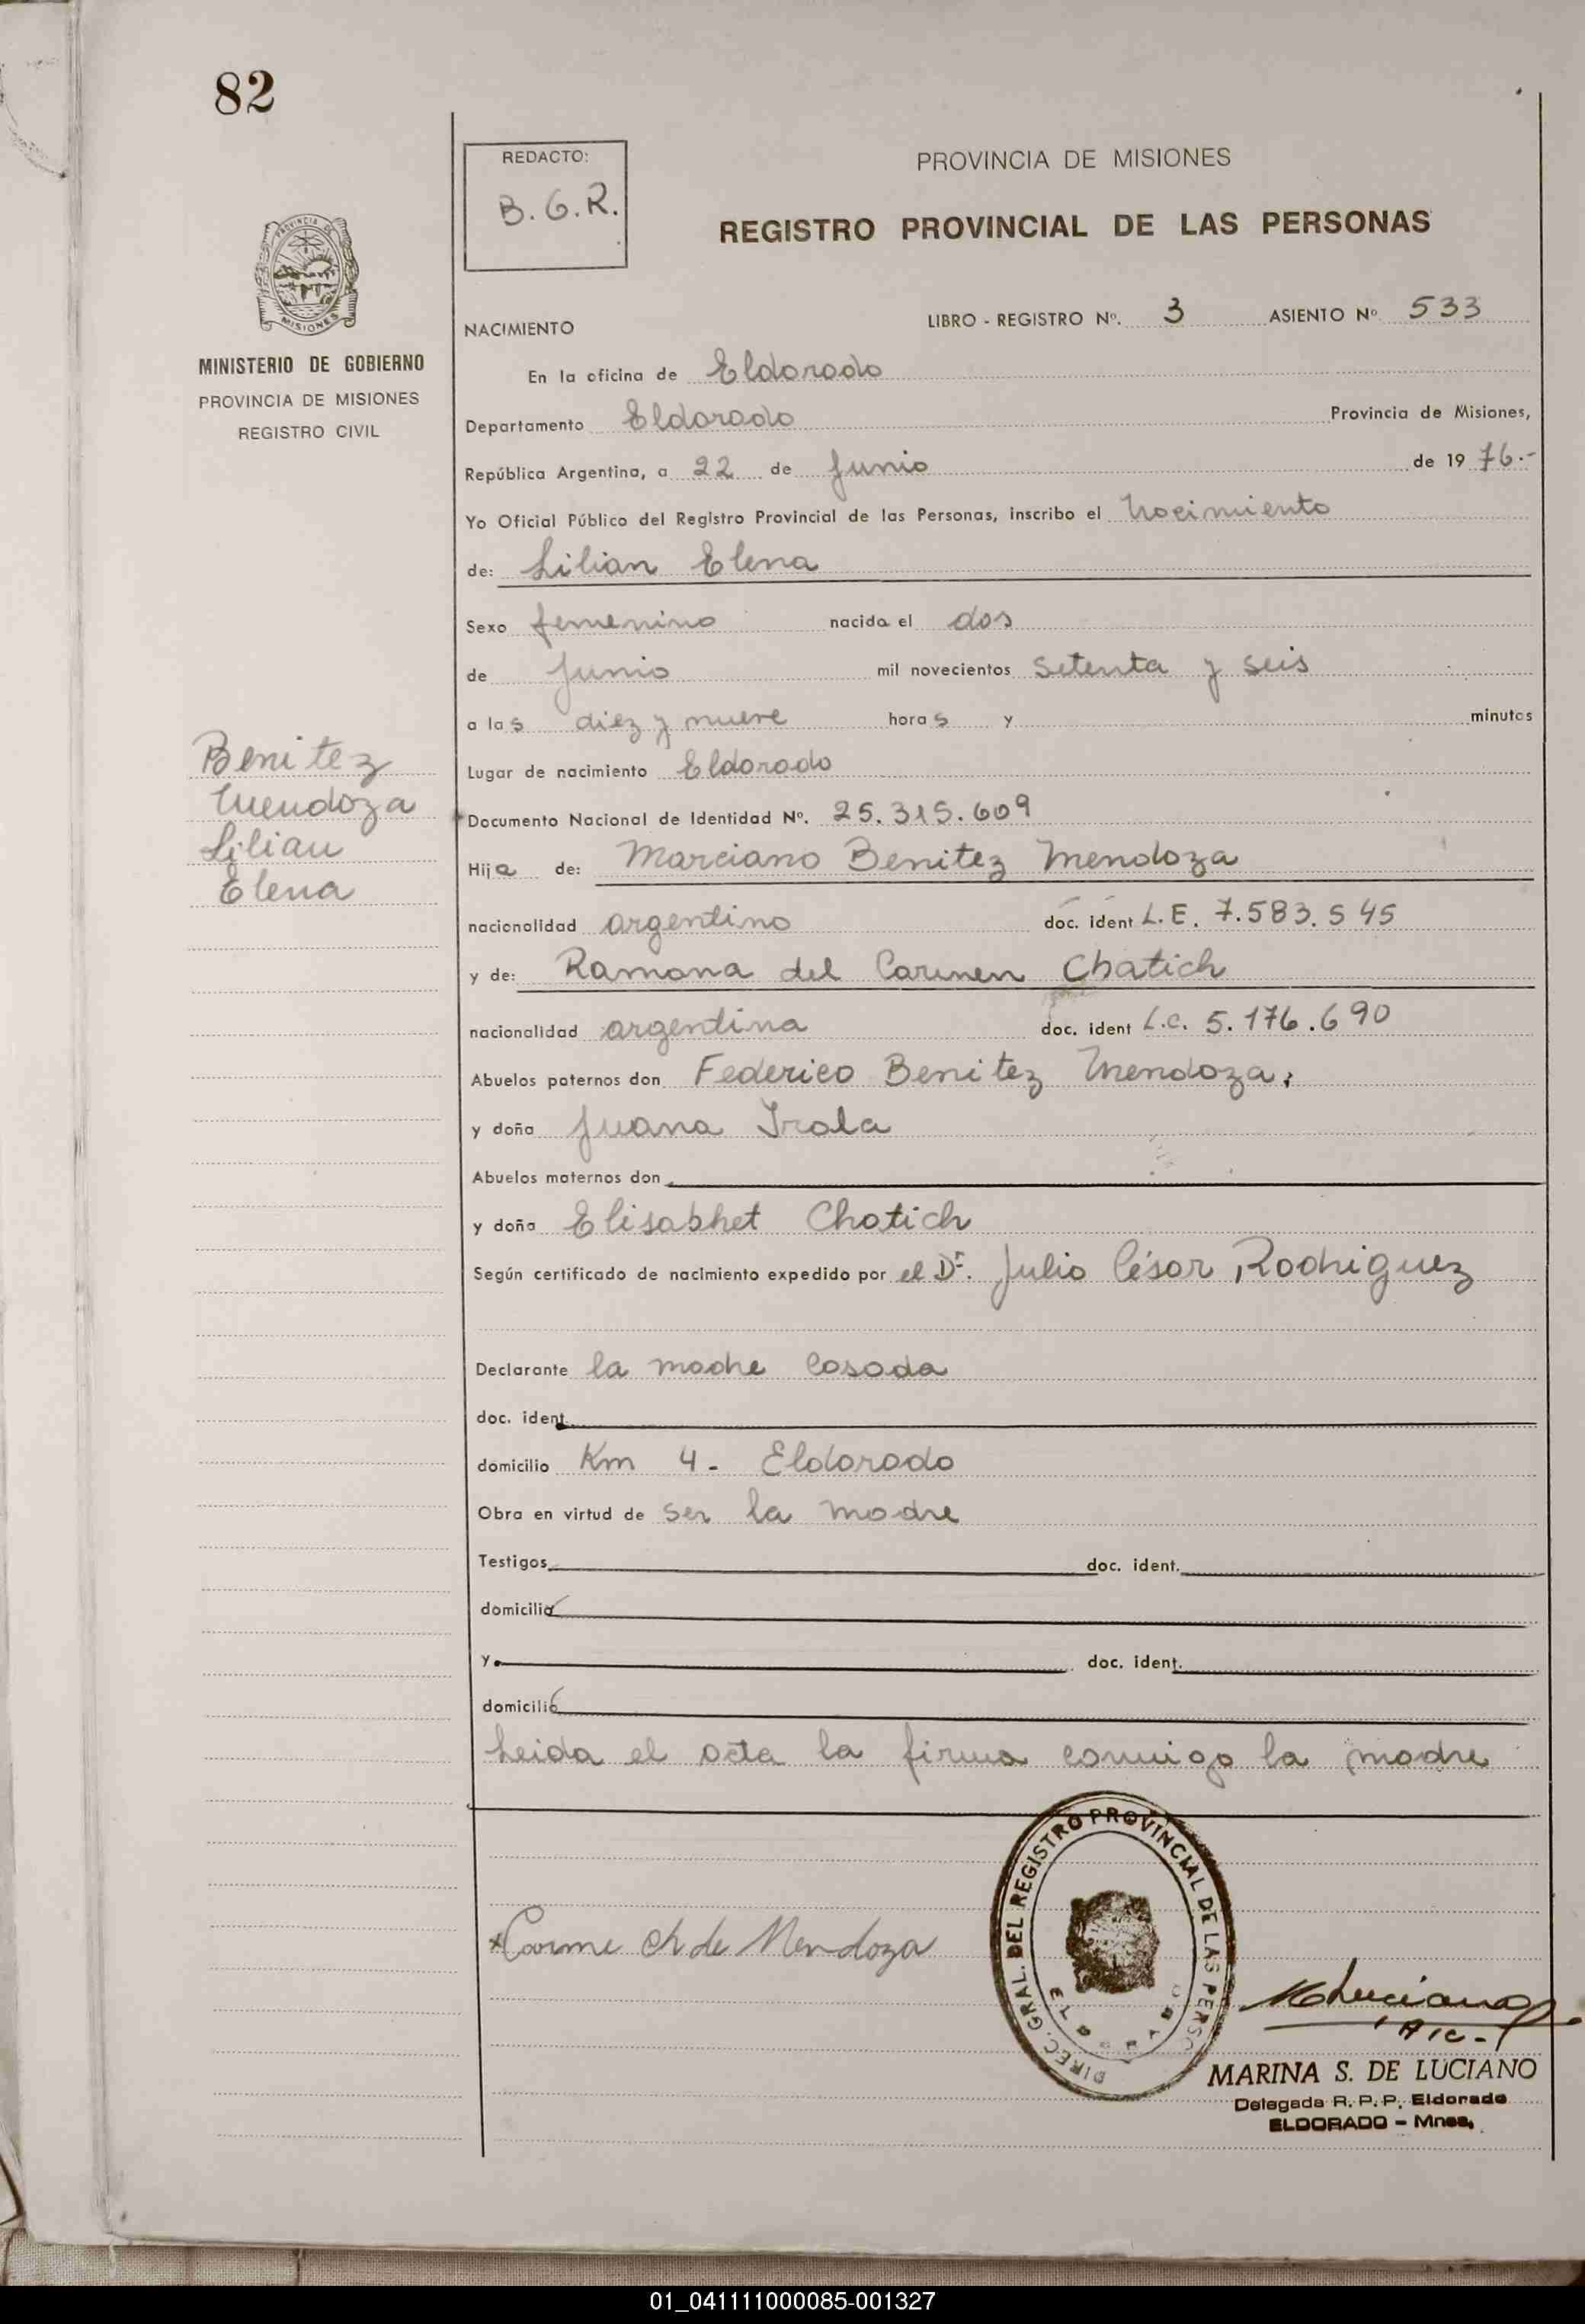 82
REDACTO:
B. G. R.
PROVINCIA DE MISIONES
REGISTRO PROVINCIAL DE LAS PERSONAS
PROVINCIA DE
MISIONES
MINISTERIO DE GOBIERNO
PROVINCIA DE MISIONES
REGISTRO CIVIL
NACIMIENTO
LIBRO - REGISTRO Nº. 3 ASIENTO Nº 533
En la oficina de Eldorado
Departamento Eldorado Provincia de Misiones,
República Argentina, a 22 de Junio de 19 76.-
Yo Oficial Público del Registro Provincial de las Personas, inscribo el Nacimiento
de: Lilian Elena
Sexo femenino nacida el dos
de Junio mil novecientos setenta y seis
a las diez y nueve horas y minutos
Lugar de nacimiento Eldorado
Benitez
Mendoza
Lilian
Elena
Documento Nacional de Identidad Nº. 25.315.609
Hija de: Marciano Benitez Mendoza
nacionalidad argentino doc. ident L.E. 7.583.545
y de: Ramona del Carmen Chatich
nacionalidad argentina doc. ident L.C. 5.176.690
Abuelos paternos don Federico Benitez Mendoza;
y doña Juana Irala
Abuelos maternos don
y doña Elisabhet Chatich
Según certificado de nacimiento expedido por el Dr. Julio César Rodriguez
Declarante la madre casada
doc. ident.
domicilio Km 4 - Eldorado
Obra en virtud de ser la madre
Testigos doc. ident.
domicilio
y doc. ident.
domicilio
Leida el acta la firma conmigo la madre
DIREC. GRAL. DEL REGISTRO PROVINCIAL DE LAS PERSO
ELDORADO
x Carme Ch de Mendoza
MARINA S. DE LUCIANO
Delegada R. P. P. Eldorado
ELDORADO - Mnes.
01_041111000085-001327